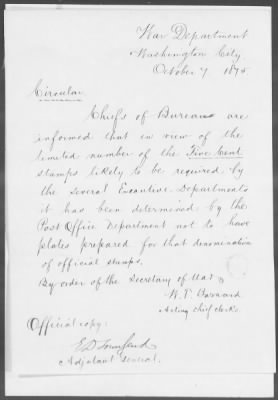 War Department
Washington City.
October 7 1875
Circular.
Chiefs of Bureaus are
informed that in view of the
limited number of the Five Cent
stamps likely to be required by
the several Executive Departments
it has been determined by the
Post Office Department not to have
plates prepared for that denomination
of official stamps.
By order of the Secretary of War
W. T. Barnard
Acting Chief Clerk.
Official copy:
E D Townsend
Adjutant General.